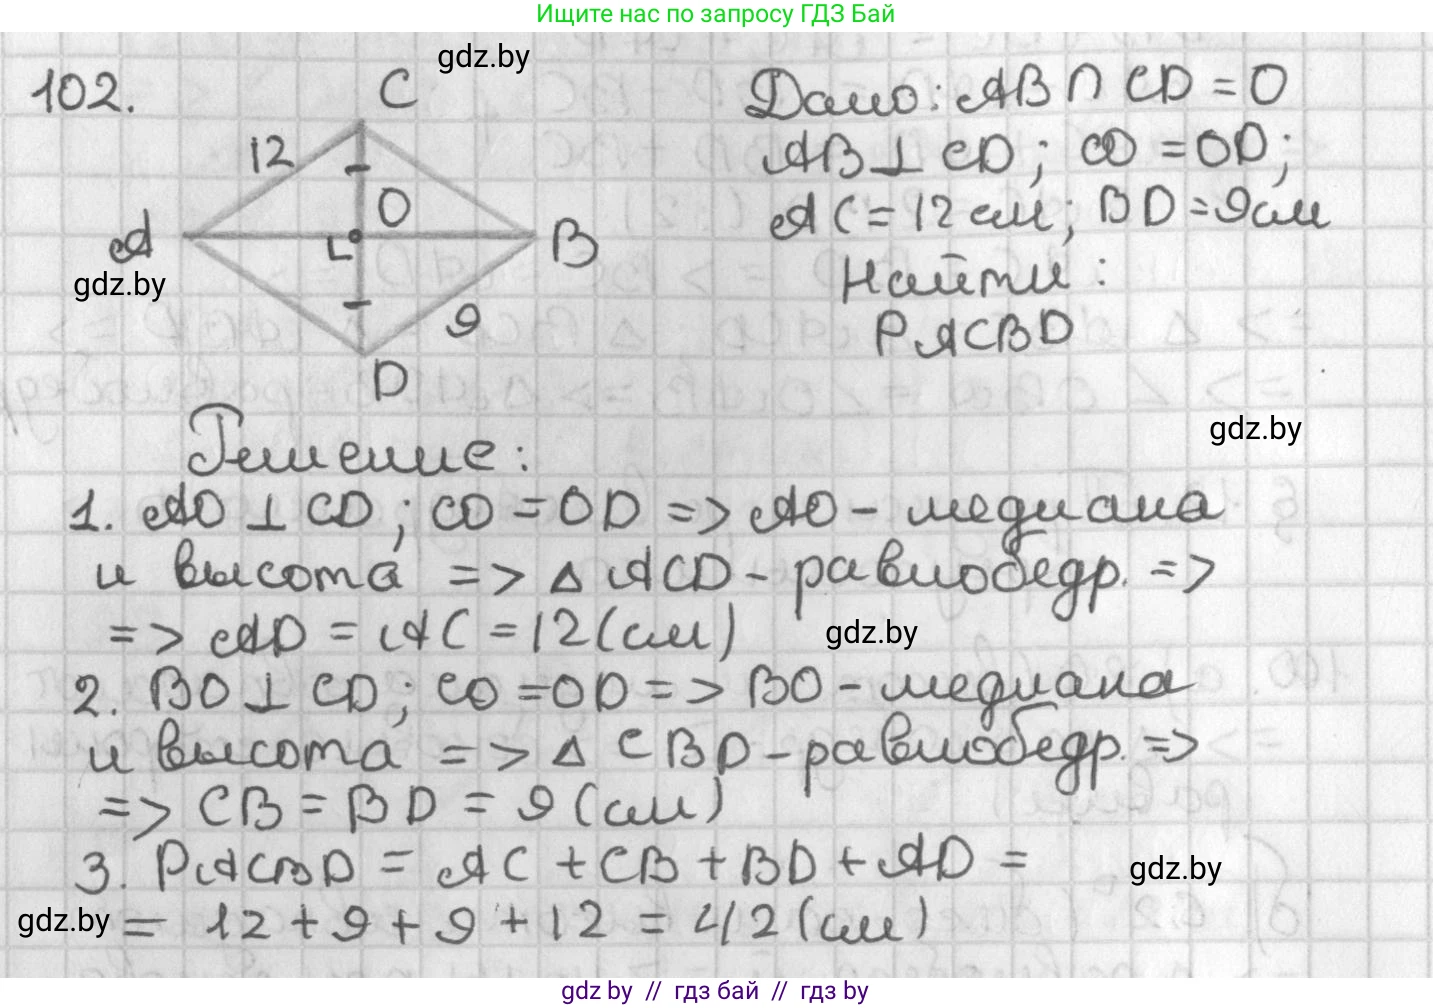 Ищите нас по запросу ГДЗ Бай
gdz.by
102.
C
12
O
A
B
gdz.by
9
D
Дано: AB ∩ CD = O
AB ⊥ CD; CO = OD;
AC = 12 см; BD = 9 см
Найти:
PACBD
gdz.by
Решение:
1. AO ⊥ CD; CO = OD => AO - медиана
и высота => △ ACD - равнобедр. =>
=> AD = AC = 12 (см)
gdz.by
2. BO ⊥ CD; CO = OD => BO - медиана
и высота => △ CBD - равнобедр. =>
=> CB = BD = 9 (см)
3. PACBD = AC + CB + BD + AD =
gdz.by
gdz.by
= 12 + 9 + 9 + 12 = 42 (см)
gdz by // гдз бай // gdz by